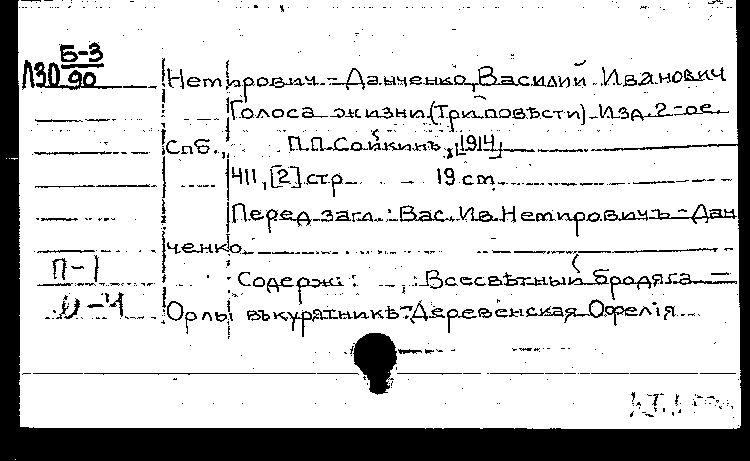 Б-3
Л30 90
Немирович-Данченко, Василий Иванович
Голоса жизни (Три повѣсти) Изд. 2-ое.
Спб., П.П. Сойкинъ, [1914]
411, [2] стр 19 cm
Перед загл.: Вас. Ив. Немировичъ-Дан
ченко
П-1
Содерж: Всесвѣтный бродяга =
Орлы въ курятникѣ = Деревенская Офелія